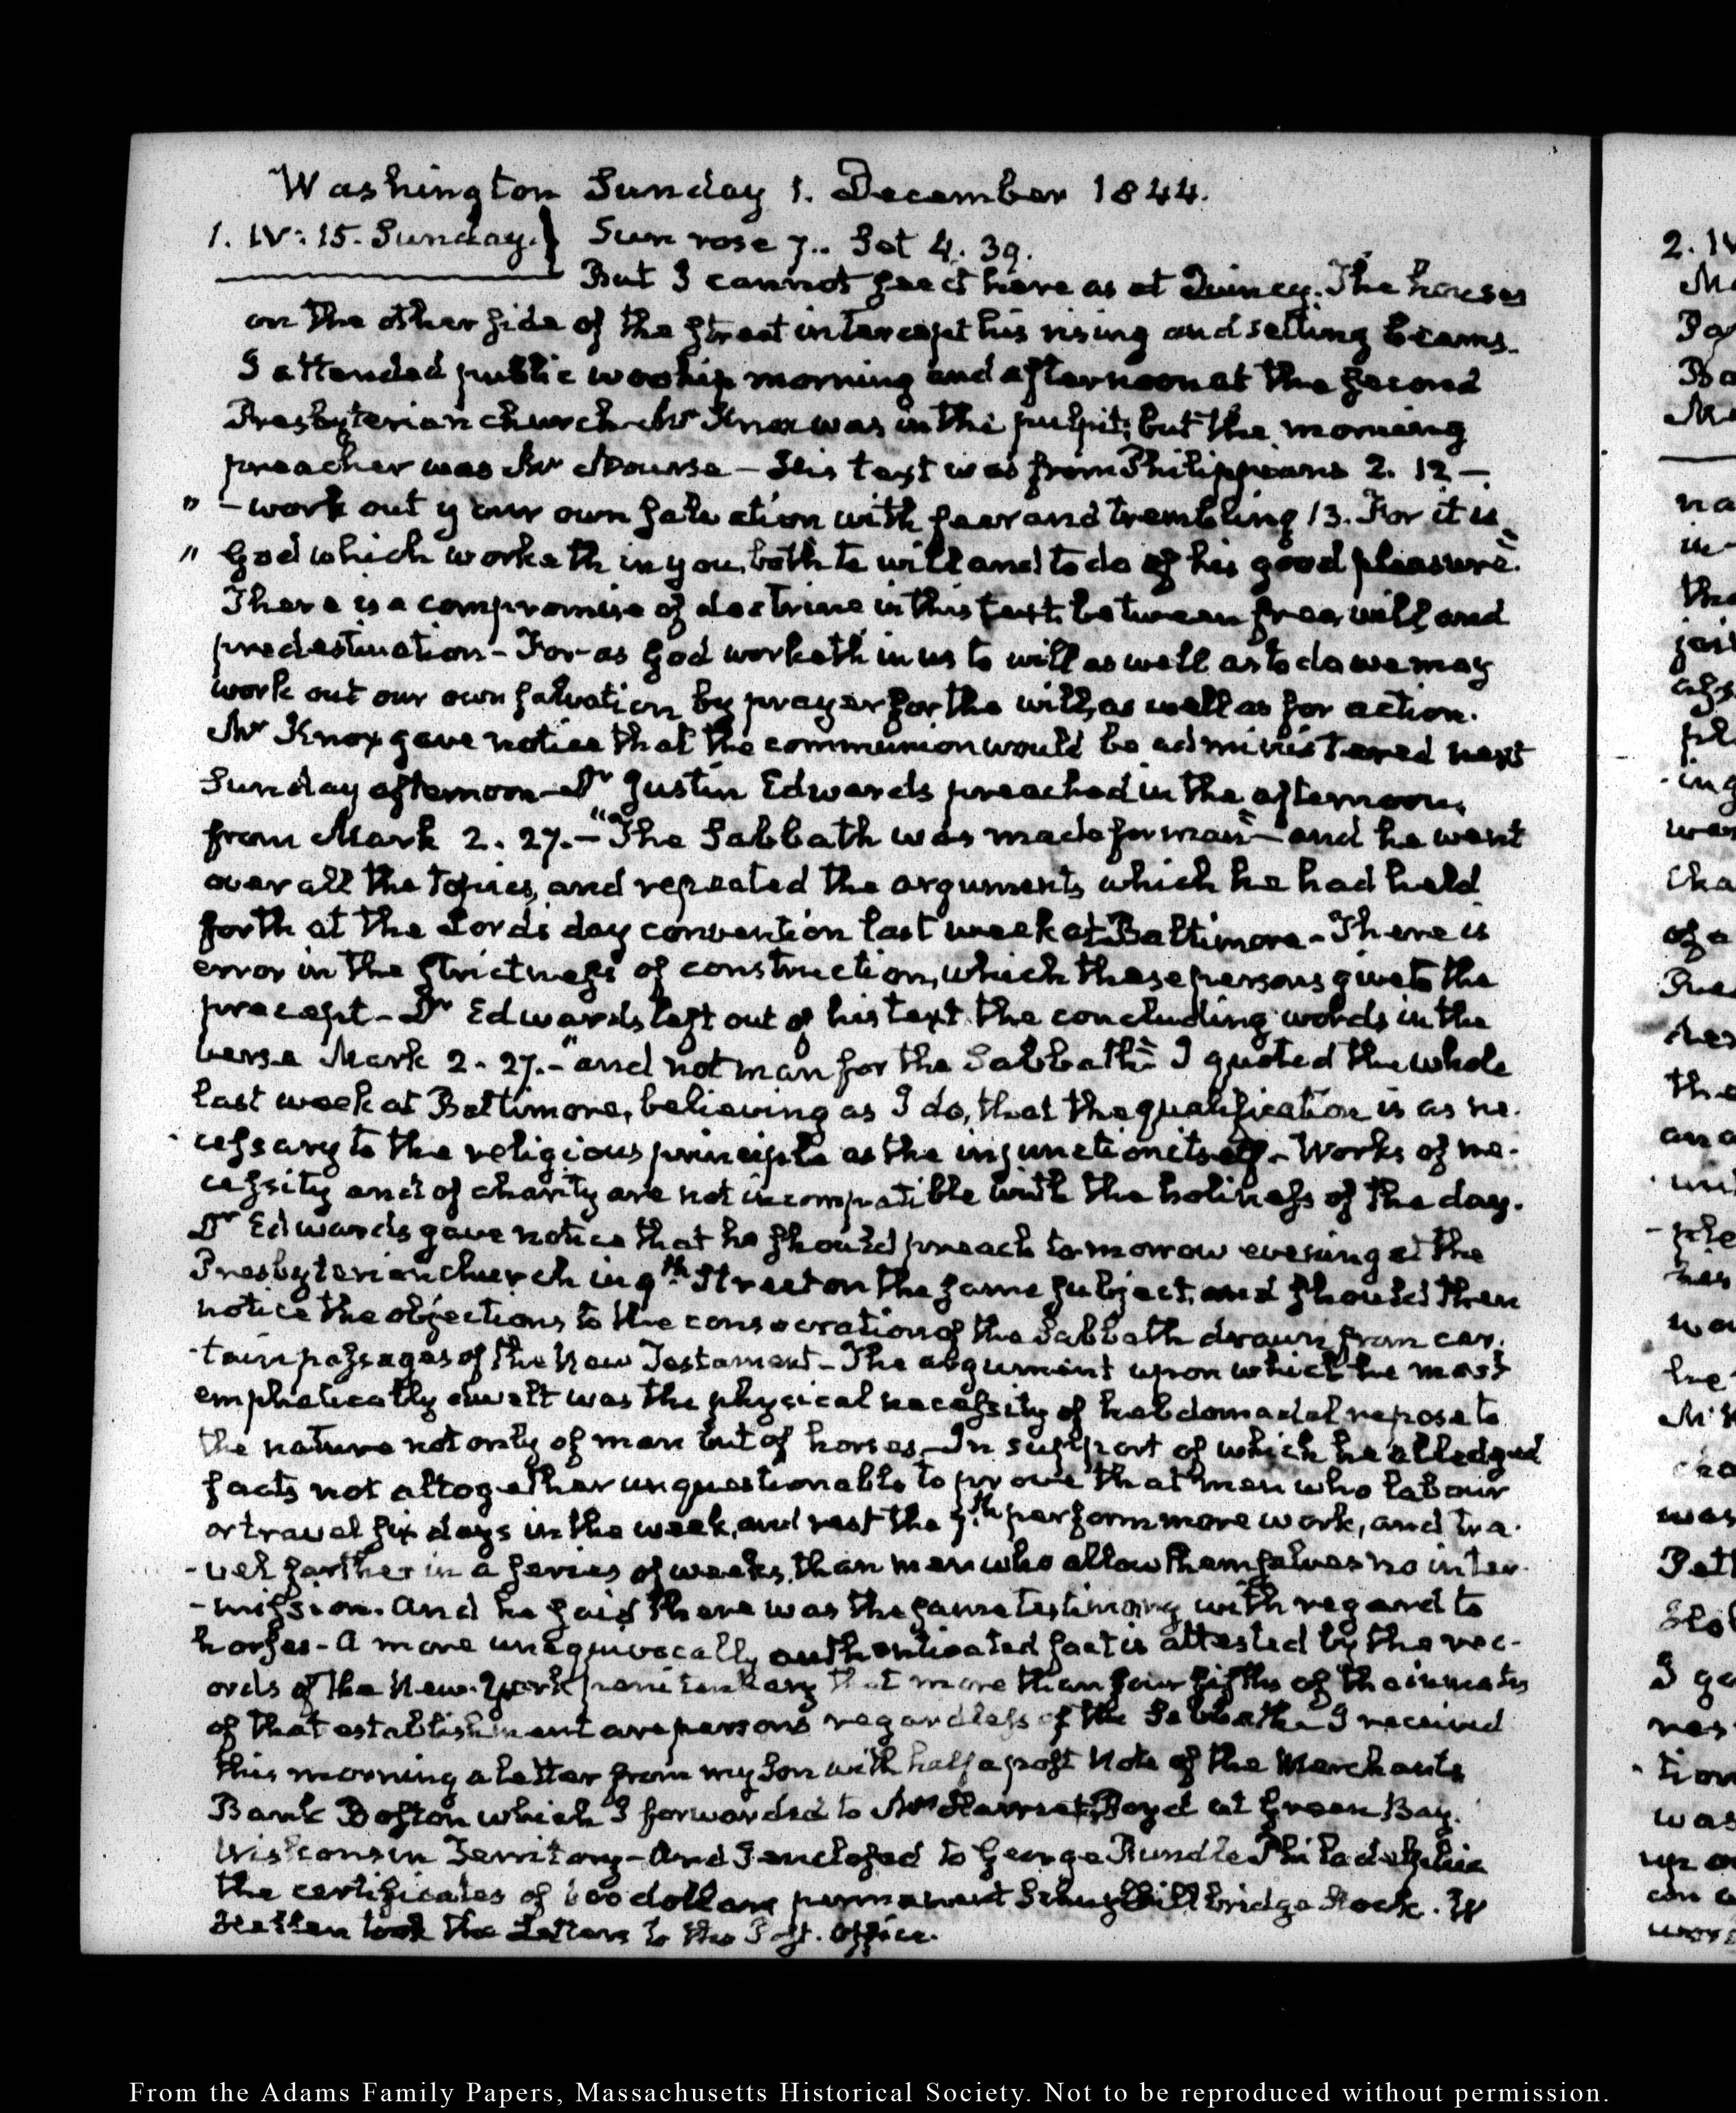 Washington Sunday 1. December 1844.
1. IV: 15. Sunday.} Sun rose 7.. Set 4. 39.
But I cannot see it here as at Quincy. The houses
on the other side of the street intercept his rising and setting beams.
I attended public worship morning and afternoon at the second
Presbyterian church Mr Knox was in the pulpit; but the morning
preacher was Mr Nourse - His text was from Philippians 2. 12 -
" - work out your own salvation with fear and trembling 13. For it is
" God which worketh in you, both to will and to do of his good pleasure."
There is a compromise of doctrine in this text between free will, and
predestination - For as God worketh in us to will as well as to do we may
work out our own salvation by prayer for the will, as well as for action.
Mr Knox gave notice that the communion would be administered next
Sunday afternoon - Dr Justin Edwards preached in the afternoon,
from Mark 2. 27. - "The Sabbath was made for man" - and he went
over all the topics, and repeated the arguments which he had held
forth at the Lord's day convention last week at Baltimore - There is
error in the strictness of construction, which these persons give to the
precept - Dr Edwards left out of his text the concluding words in the
verse Mark 2. 27. - "and not man for the Sabbath" I quoted the whole
last week at Baltimore, believing as I do, that the qualification is as ne-
cessary to the religious principle as the injunction itself - Works of ne-
cessity and of charity are not incompatible with the holiness of the day.
Dr Edwards gave notice that he should preach to-morrow evening at the
Presbyterian church in 9th Street on the same subject, and should then
notice the objections to the consecration of the Sabbath drawn from cer-
-tain passages of the New Testament - The argument upon which he most
emphatically dwelt was the physical necessity of hebdomadal repose to
the nature not only of man but of horses - In support of which he alledged
facts not altogether unquestionable to prove that men who labour
or travel six days in the week, and rest the 7th perform more work, and tra-
-vel further in a series of weeks, than men who allow themselves no inter-
-mission. And he said there was the same testimony with regard to
horses - A more unequivocally authenticated fact is attested by the rec-
ords of the New-York penitentiary that more than four fifths of the inmates
of that establishment are persons regardless of the Sabbath - I received
this morning a letter from my Son with half a post Note of the Merchants
Bank Boston which I forwarded to Mrs Harriet Boyd at Green Bay
Wiskonsin Territory - And I enclosed to George Rundle Philadelphia
the certificates of 600 dollars permanent Schuylkill bridge Stock. W
took the Letters to the Post. Office.
2. IV